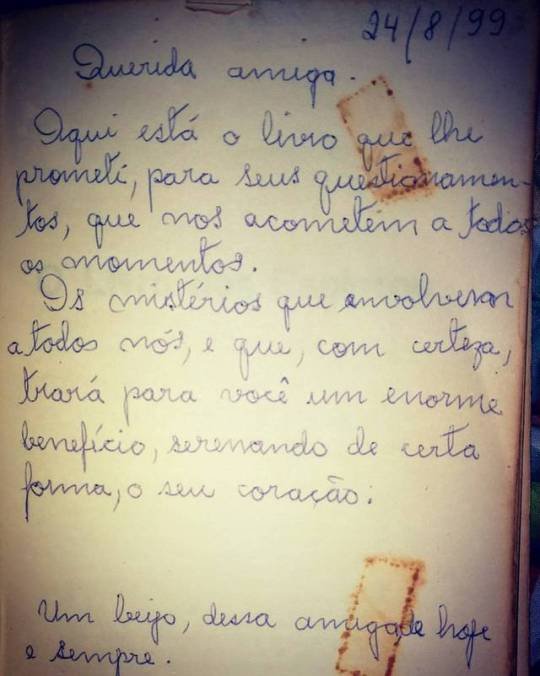 24/8/99
Querida amiga.
Aqui está o livro que lhe
prometi, para seus questionamen-
tos, que nos acometem a todos
os momentos.
Os mistérios que envolvem
a todos nós, e que, com certeza,
trará para você um enorme
benefício, serenando de certa
forma, o seu coração.
Um beijo, dessa amiga de hoje
e sempre.